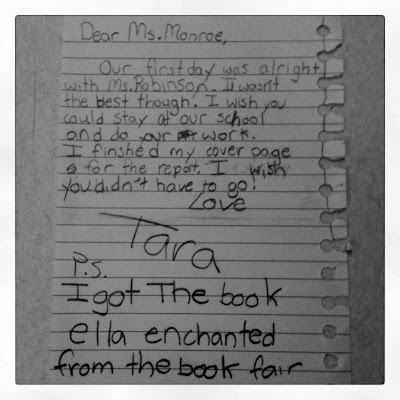 Dear Ms. Monroe,
Our first day was alright
with Ms. Robinson. It wasn't
the best though. I wish you
could stay at our school
and do our work.
I finshed my cover page
for the repat. I wish
you didn't have to go!
Love
Tara
P.S.
I got The book
ella enchanted
from the book fair